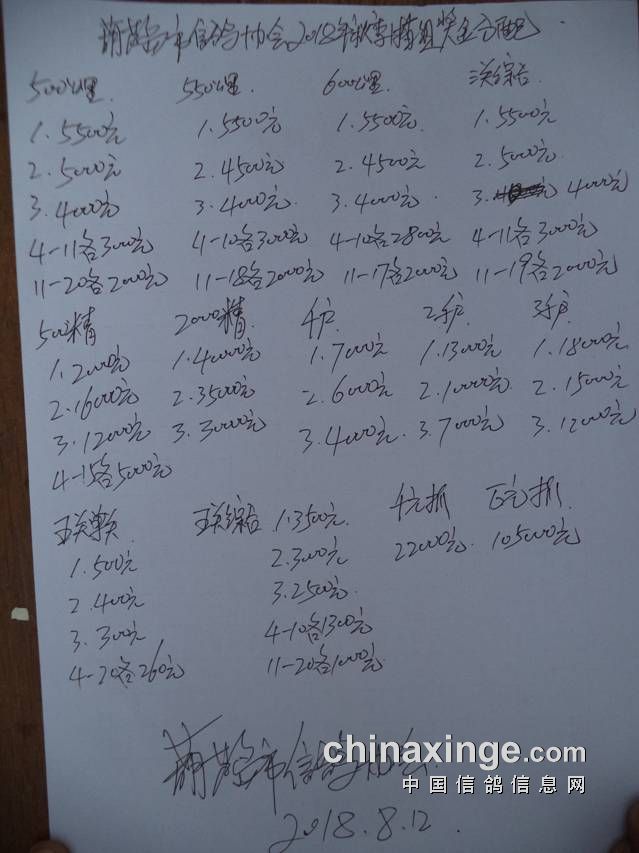 葫芦岛市信鸽协会2018年秋季精组奖金分配
500公里. 550公里. 600公里. 三关综合
1.5500元 1.5500元 1.5500元. 1.5500元
2.5000元 2.4500元 2.4500元 2.5000元.
3.4000元 3.4000元. 3.4000元. 3. 4000元
4-11名3000元 4-10名3000元 4-10名2800元 4-11名3000元
11-20名2000元 11-18名2000元 11-17名2000元 11-19名2000元
500精 2000精. 千户 2千户 3千户
1.2000元 1.4000元 1.7000元 1.13000元 1.18000元.
2.1600元 2.3500元 2.6000元 2.10000元 2.15000元
3.12000元 3.3000元 3.4000元. 3.7000元 3.12000元
4-15名5000元
三关单关 三关综合 1.3500元. 千元抓 百元抓.
1.500元 2.3000元 22000元. 105000元
2.400元 3.2500元.
3.300元 4-10名1300元
4-20名260元 11-20名1000元.
葫芦岛市信鸽协会
2018.8.12.
chinaxinge.com
中国信鸽信息网